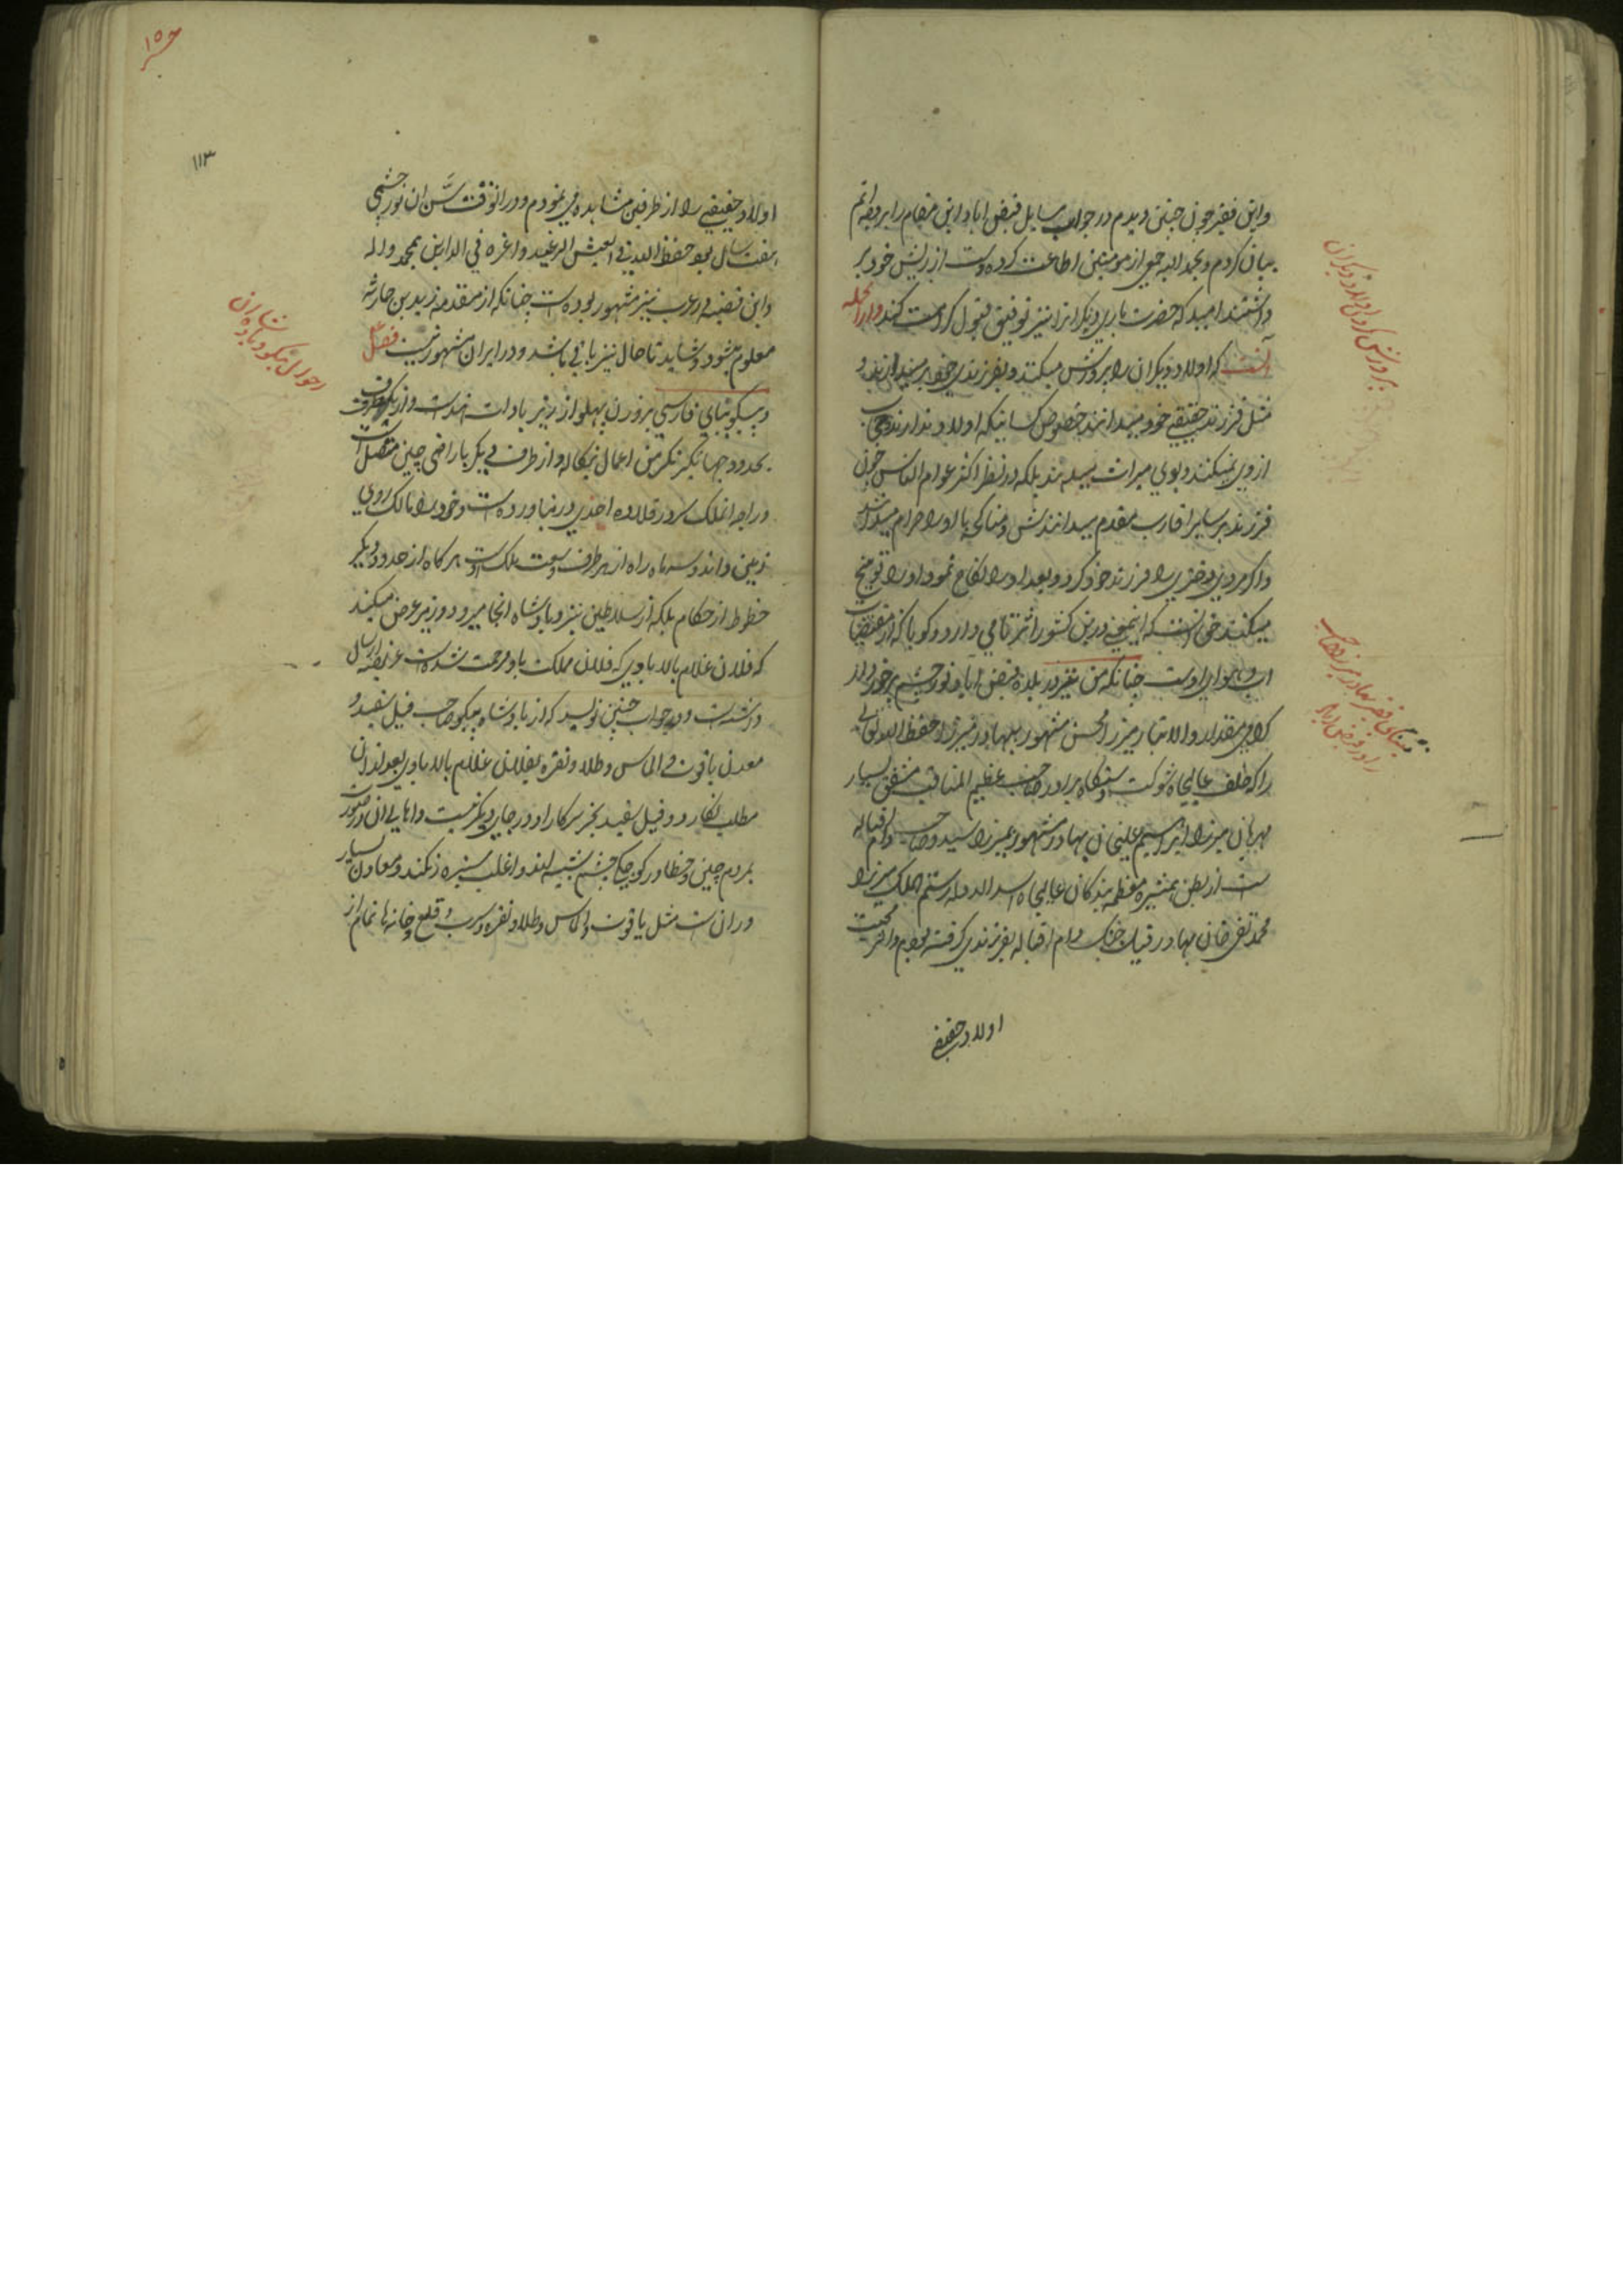 واین فقیر چون چنین دیدم در جواب مسایل فیض اباد این مقام را بر وجه اتم
بیان کردم و بحمد الله جمعی از مومنین اطاعت کرده دست از ریش خود بر
داشتند امید که حضرت باری دیگرانرا نیز توفیق قبول کرامت کند و از انجمله
آنست که اولاد دیگران را پرورش میکنند و بفرزندی خود بر میدارند و
مثل فرزند حقیقی خود میدانند خصوص کسانیکه اولاد ندارند و حجاب
از وی نمیکنند و بوی میراث میدهند بلکه در نظر اکثر عوام الناس چون
فرزند بر سایر اقارب مقدم میدانندش و مناکحه با او را حرام میدانند
و اگر مردی دختری را فرزند خود کرد و بعد او را نکاح نمود او را توبیخ
میکنند حق انست که اینمعنی درین کشور اثر تامی دارد و گویا که از مقتضیات
اب و هوای اوست چنانکه من نیز در بلده فیض اباد نورچشم برخوردار
کرامی مقدار والاتبار میرزا محسن مشهور ببهادر میرزا حفظه الله تعالی
را که خلف عالیجاه شوکت دستگاه برادر صاحب عظیم المناقب مشفق بسیار
مهربان میرزا ابراهیم علیخان بهادر مشهور بمیرزا سیدو صاحب دام اقباله
ست از بطن همشیره معظمه بندگان عالیجاه اسد الدوله رستم الملک میرزا
محمد تقی خان بهادر جنک دام اقباله بفرزندی گرفته بودم و اثر محبت
اولاد حقیقی
پرورش کردن اولاد دیگران
اولاد حقیقی را از طرفین مشاهده می نمودم و در انوقت سن ان نورچشمی
هفت سال بود حفظه الله فی العیش الرغید و اعزه فی الدارین بمحمد واله
و این قضیه در عرب نیز مشهور بوده است چنانکه از مقدمه زید بن حارثه
معلوم میشود و شاید تا حال نیز باقی باشد و در ایران مشهور نیست فصل
و پیکو ببای فارسی بر وزن پهلو از زیر بادات هند است و از یکطرف
بحدود جهانگیر نگر من اعمال بنگاله و از طرف دیگر باراضی چین متصل است
و راجه انملک سر در قلاده احدی در نیاورده است و خود را مالک روی
زمین داند و سه ماه راه از هر طرف وسعت ملک اوست هر گاه از حدود دیگر
خطوط از حکام بلکه از سلاطین نیز و بادشاه انجا میرود وزیر عرض میکند
که فلان غلام بالا بادی که فلان مملکت باو مرحمت شده است عریضه ارسال
داشته است و در جواب چنین نویسد که از بادشاه پیکو صاحب فیل سفید و
معدن یاقوت و الماس و طلا و نقره بفلان غلام بالا بادی بعد از ان
مطلب نگارد و فیل سفید بجز سرکار او در جای دیگر نیست و اهالی ان در صورت
بمردم چین و خطا و در کوچکی چشم شبیه اند و اغلب سبزه رنگند و معادن بسیار
در ان است مثل یاقوت و الماس و طلا و نقره و سرب و قلع و خانه ها تمام از
احوال پیکو و بادشاه ان
١١٣